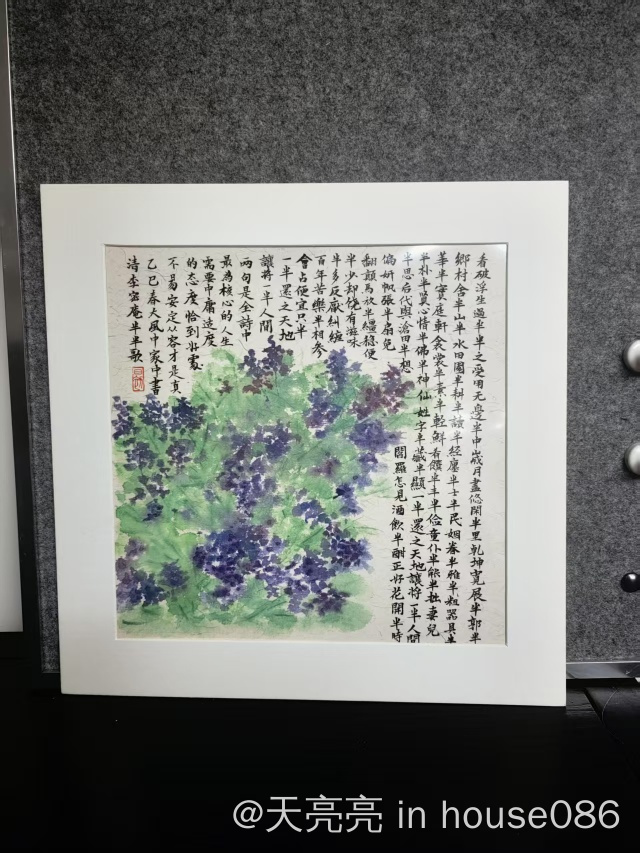 看破浮生過半半之受用无邊半中歲月盡悠閑半里乾坤寬展半郭半
鄉村舍半山半水田園半耕半讀半經廛半士半民姻眷半雅半粗器具半
華半實庭軒衾裳半素半輕鮮肴饌半丰半儉童仆半能半拙妻兒
半朴半賢心情半佛半神仙姓字半藏半顯一半還之天地讓將一半人間
半思后代與滄田半想閻羅怎見酒飲半酣正好花開半時
偏妍帆張半扇免
翻顛馬放半韁穩便
半少卻饒有滋味
半多反厭糾纏
百年苦樂半相參
會占便宜只半
一半還之天地
讓將一半人間
兩句是全詩中
最為核心的人生
需要中庸适度
的态度恰到好處
不易安定从容才是真
乙巳春天風中家中書
清李密庵半半歌
@天亮亮 in house086